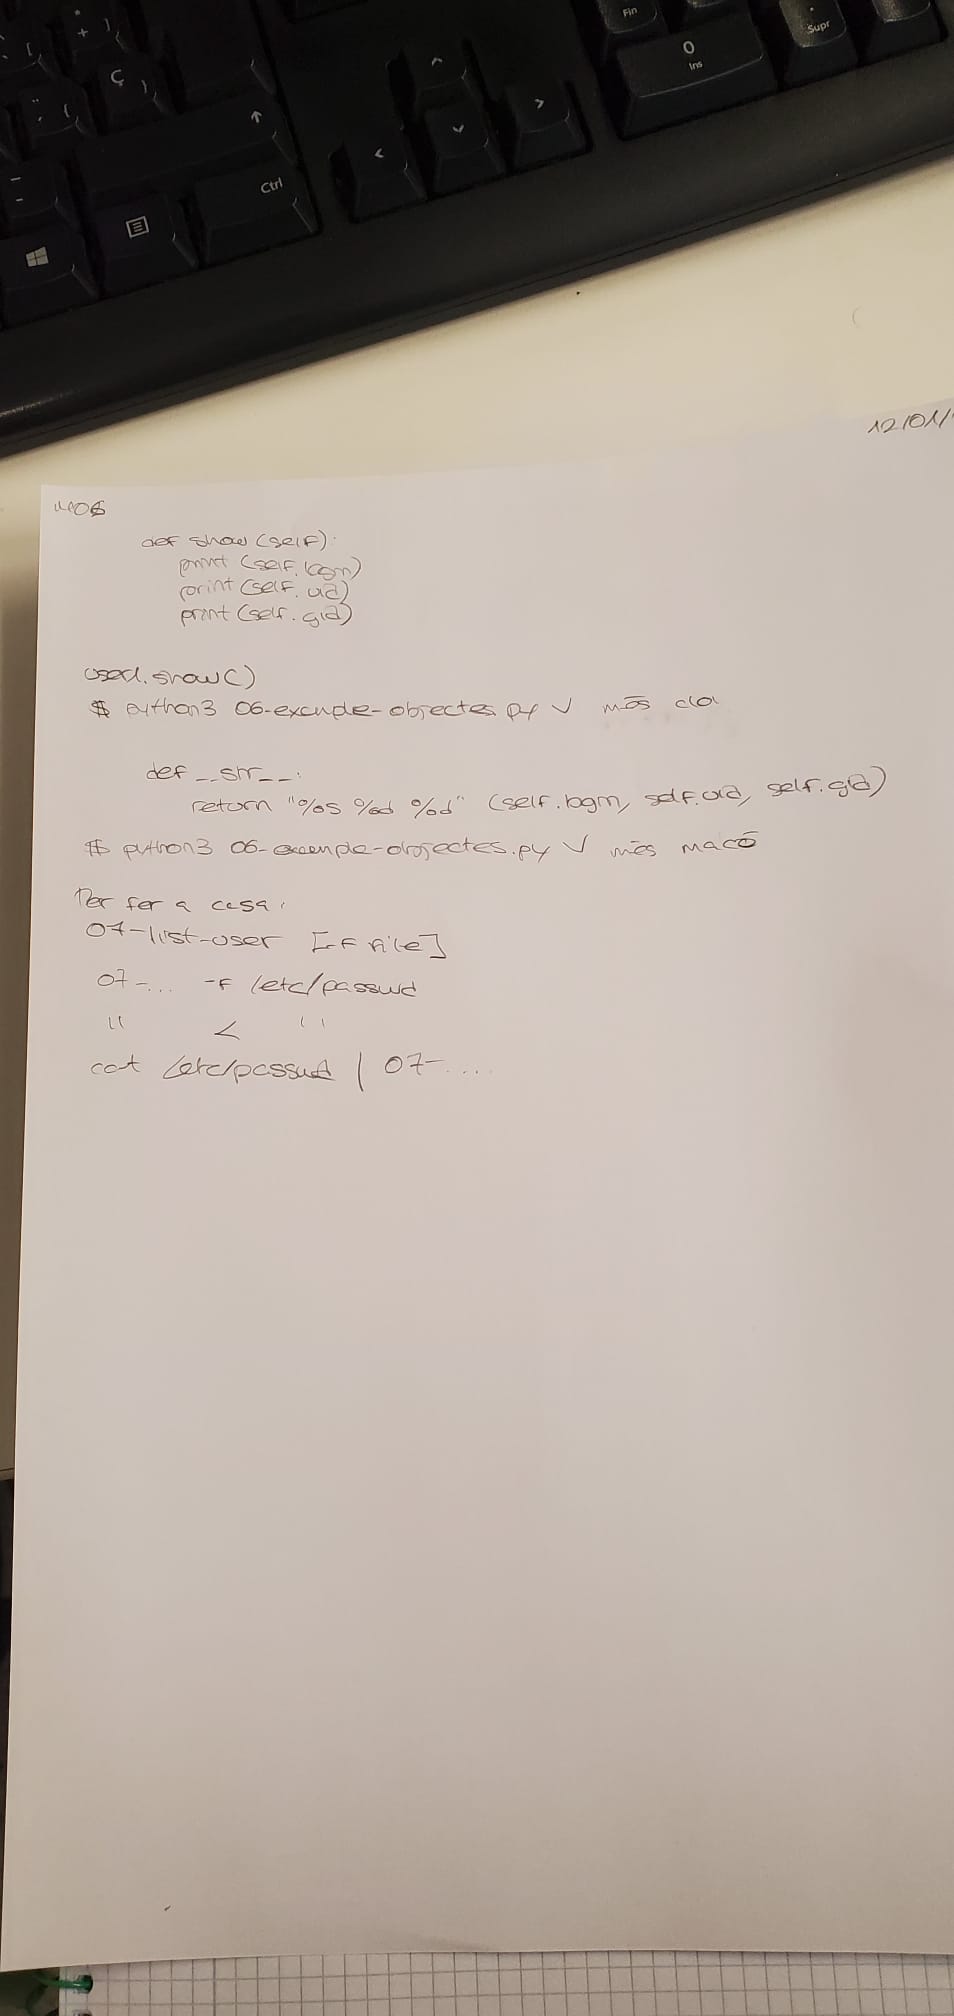 Fin
Supr
0
Ins
Ç
Ctrl
12/01/
M06
def show (self):
print (self.login)
print (self.uid)
print (self.gid)
user1.show()
$ python3 06-exemple-objectes.py √ més
def __str__:
return "%s %d %d" (self.login, self.uid, self.gid)
$ python3 06-exemple-objectes.py √ més macо
Per fer a casa:
07-list-user [-f file]
07-... -f /etc/passwd
" < "
cat /etc/passwd | 07-....